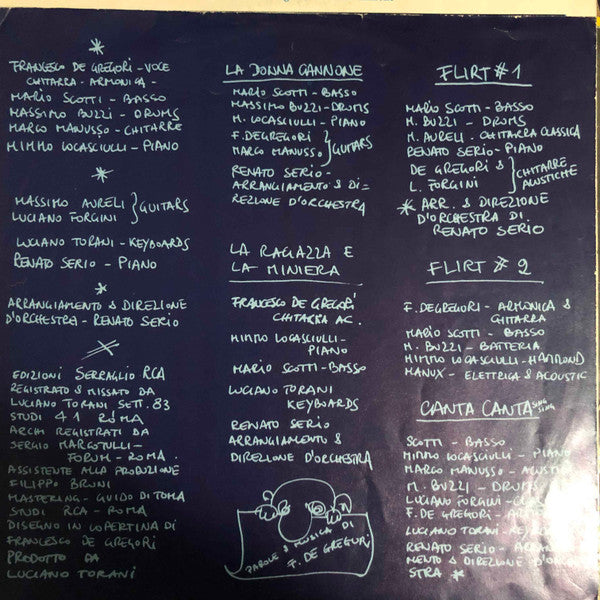 *
FRANCESCO DE GREGORI - VOCE
CHITARRA - ARMONICA -
MARIO SCOTTI - BASSO
MASSIMO BUZZI - DRUMS
MARCO MANUSSO - CHITARRE
MIMMO LOCASCIULLI - PIANO
*
MASSIMO AURELI
LUCIANO FORGINI } GUITARS
LUCIANO TORANI - KEYBOARDS
RENATO SERIO - PIANO
*
ARRANGIAMENTO & DIREZIONE
D'ORCHESTRA - RENATO SERIO
EDIZIONI SERRAGLIO RCA
REGISTRATO & MISSATO DA
LUCIANO TORANI SETT. 83
STUDI 41 ROMA
ARCHI REGISTRATI DA
SERGIO MARCOTULLI -
FORUM - ROMA
ASSISTENTE ALLA PRODUZIONE
FILIPPO BRUNI
MASTERING - GUIDO DI TOMA
STUDI RCA - ROMA
DISEGNO IN COPERTINA DI
FRANCESCO DE GREGORI
PRODOTTO DA
LUCIANO TORANI
LA DONNA CANNONE
MARIO SCOTTI - BASSO
MASSIMO BUZZI - DRUMS
M. LOCASCIULLI - PIANO
F. DEGREGORI
MARCO MANUSSO } GUITARS
RENATO SERIO -
ARRANGIAMENTO & DI-
REZIONE D'ORCHESTRA
LA RAGAZZA E
LA MINIERA
FRANCESCO DE GREGORI
CHITARRA AC.
MIMMO LOCASCIULLI -
PIANO
MARIO SCOTTI - BASSO
LUCIANO TORANI
KEYBOARDS
RENATO SERIO
ARRANGIAMENTO &
DIREZIONE D'ORCHESTRA
PAROLE & MUSICA DI
F. DE GREGORI
FLIRT #1
MARIO SCOTTI - BASSO
M. BUZZI - DRUMS
M. AURELI - CHITARRA CLASSICA
RENATO SERIO - PIANO
DE GREGORI &
L. FORGINI } CHITARRE ACUSTICHE
* ARR. & DIREZIONE
D'ORCHESTRA DI
RENATO SERIO
FLIRT #2
F. DEGREGORI - ARMONICA &
CHITARRA
MARIO SCOTTI - BASSO
M. BUZZI - BATTERIA
MIMMO LOCASCIULLI - HAMMOND
MANUX - ELETTRICA & ACOUSTIC
CANTA CANTA
SCOTTI - BASSO
MIMMO LOCASCIULLI - PIANO
MARCO MANUSSO -
M. BUZZI - DRUMS
LUCIANO FORGINI -
F. DE GREGORI -
LUCIANO TORANI -
RENATO SERIO -
MENTO & DIREZIONE
STRA *